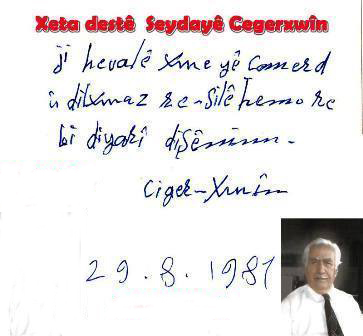 Xeta destê Seydayê Cegerxwîn
ji hevalê xwe yê comerd
û dilxwaz re - Silê Hemo re
bi diyarî dişênim.
Ciger-Xwîn
29.8.1981